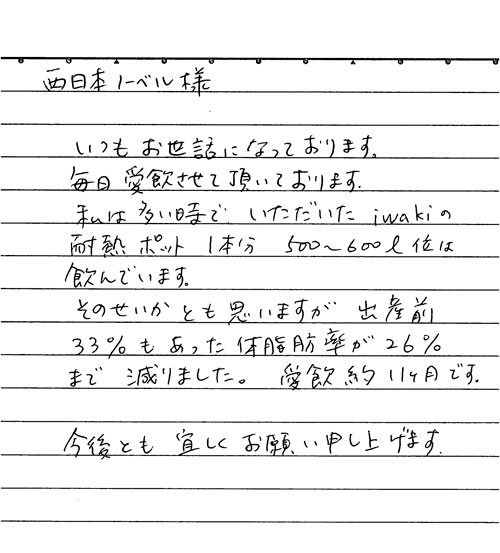 西日本ノーベル様
いつもお世話になっております。
毎日愛飲させて頂いております.
私は多い時で、いただいた iwakiの
耐熱ポット 1本分 500〜600ℓ位は
飲んでいます。
そのせいかとも思いますが 出産前
33%もあった体脂肪率が26%
まで 減りました。 愛飲約11ヶ月です.
今後とも 宜しくお願い申し上げます.